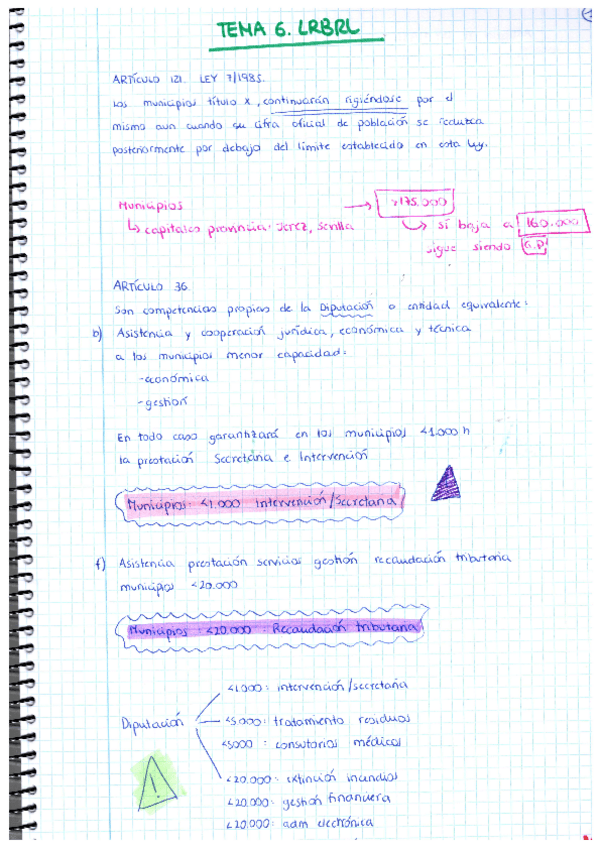 TEMA 6. LRBRL
ARTÍCULO 121. LEY 7/1985.
Los municipios título X, continuarán rigiéndose por el
mismo aun cuando su cifra oficial de población se reduzca
posteriormente por debajo del límite establecido en esta ley.
Municipios → >175.000
↳ capitales provincia: Jerez, Sevilla
si baja a 160.000
sigue siendo G.P
ARTÍCULO 36.
Son competencias propias de la Diputación o entidad equivalente:
b) Asistencia y cooperación jurídica, económica y técnica
a los municipios menor capacidad:
-económica
-gestión
En todo caso garantizará en los municipios <1.000 h
la prestación Secretaría e Intervención
Municipios: <1.000 Intervención/Secretaría
f) Asistencia prestación servicios gestión recaudación tributaria
municipios <20.000
Municipios: <20.000: Recaudación tributaria
<1.000: intervención/secretaría
Diputación <5.000: tratamiento residuos
<5000: consultorios médicos
<20.000: extinción incendios
<20.000: gestión financiera
<20.000: adm electrónica